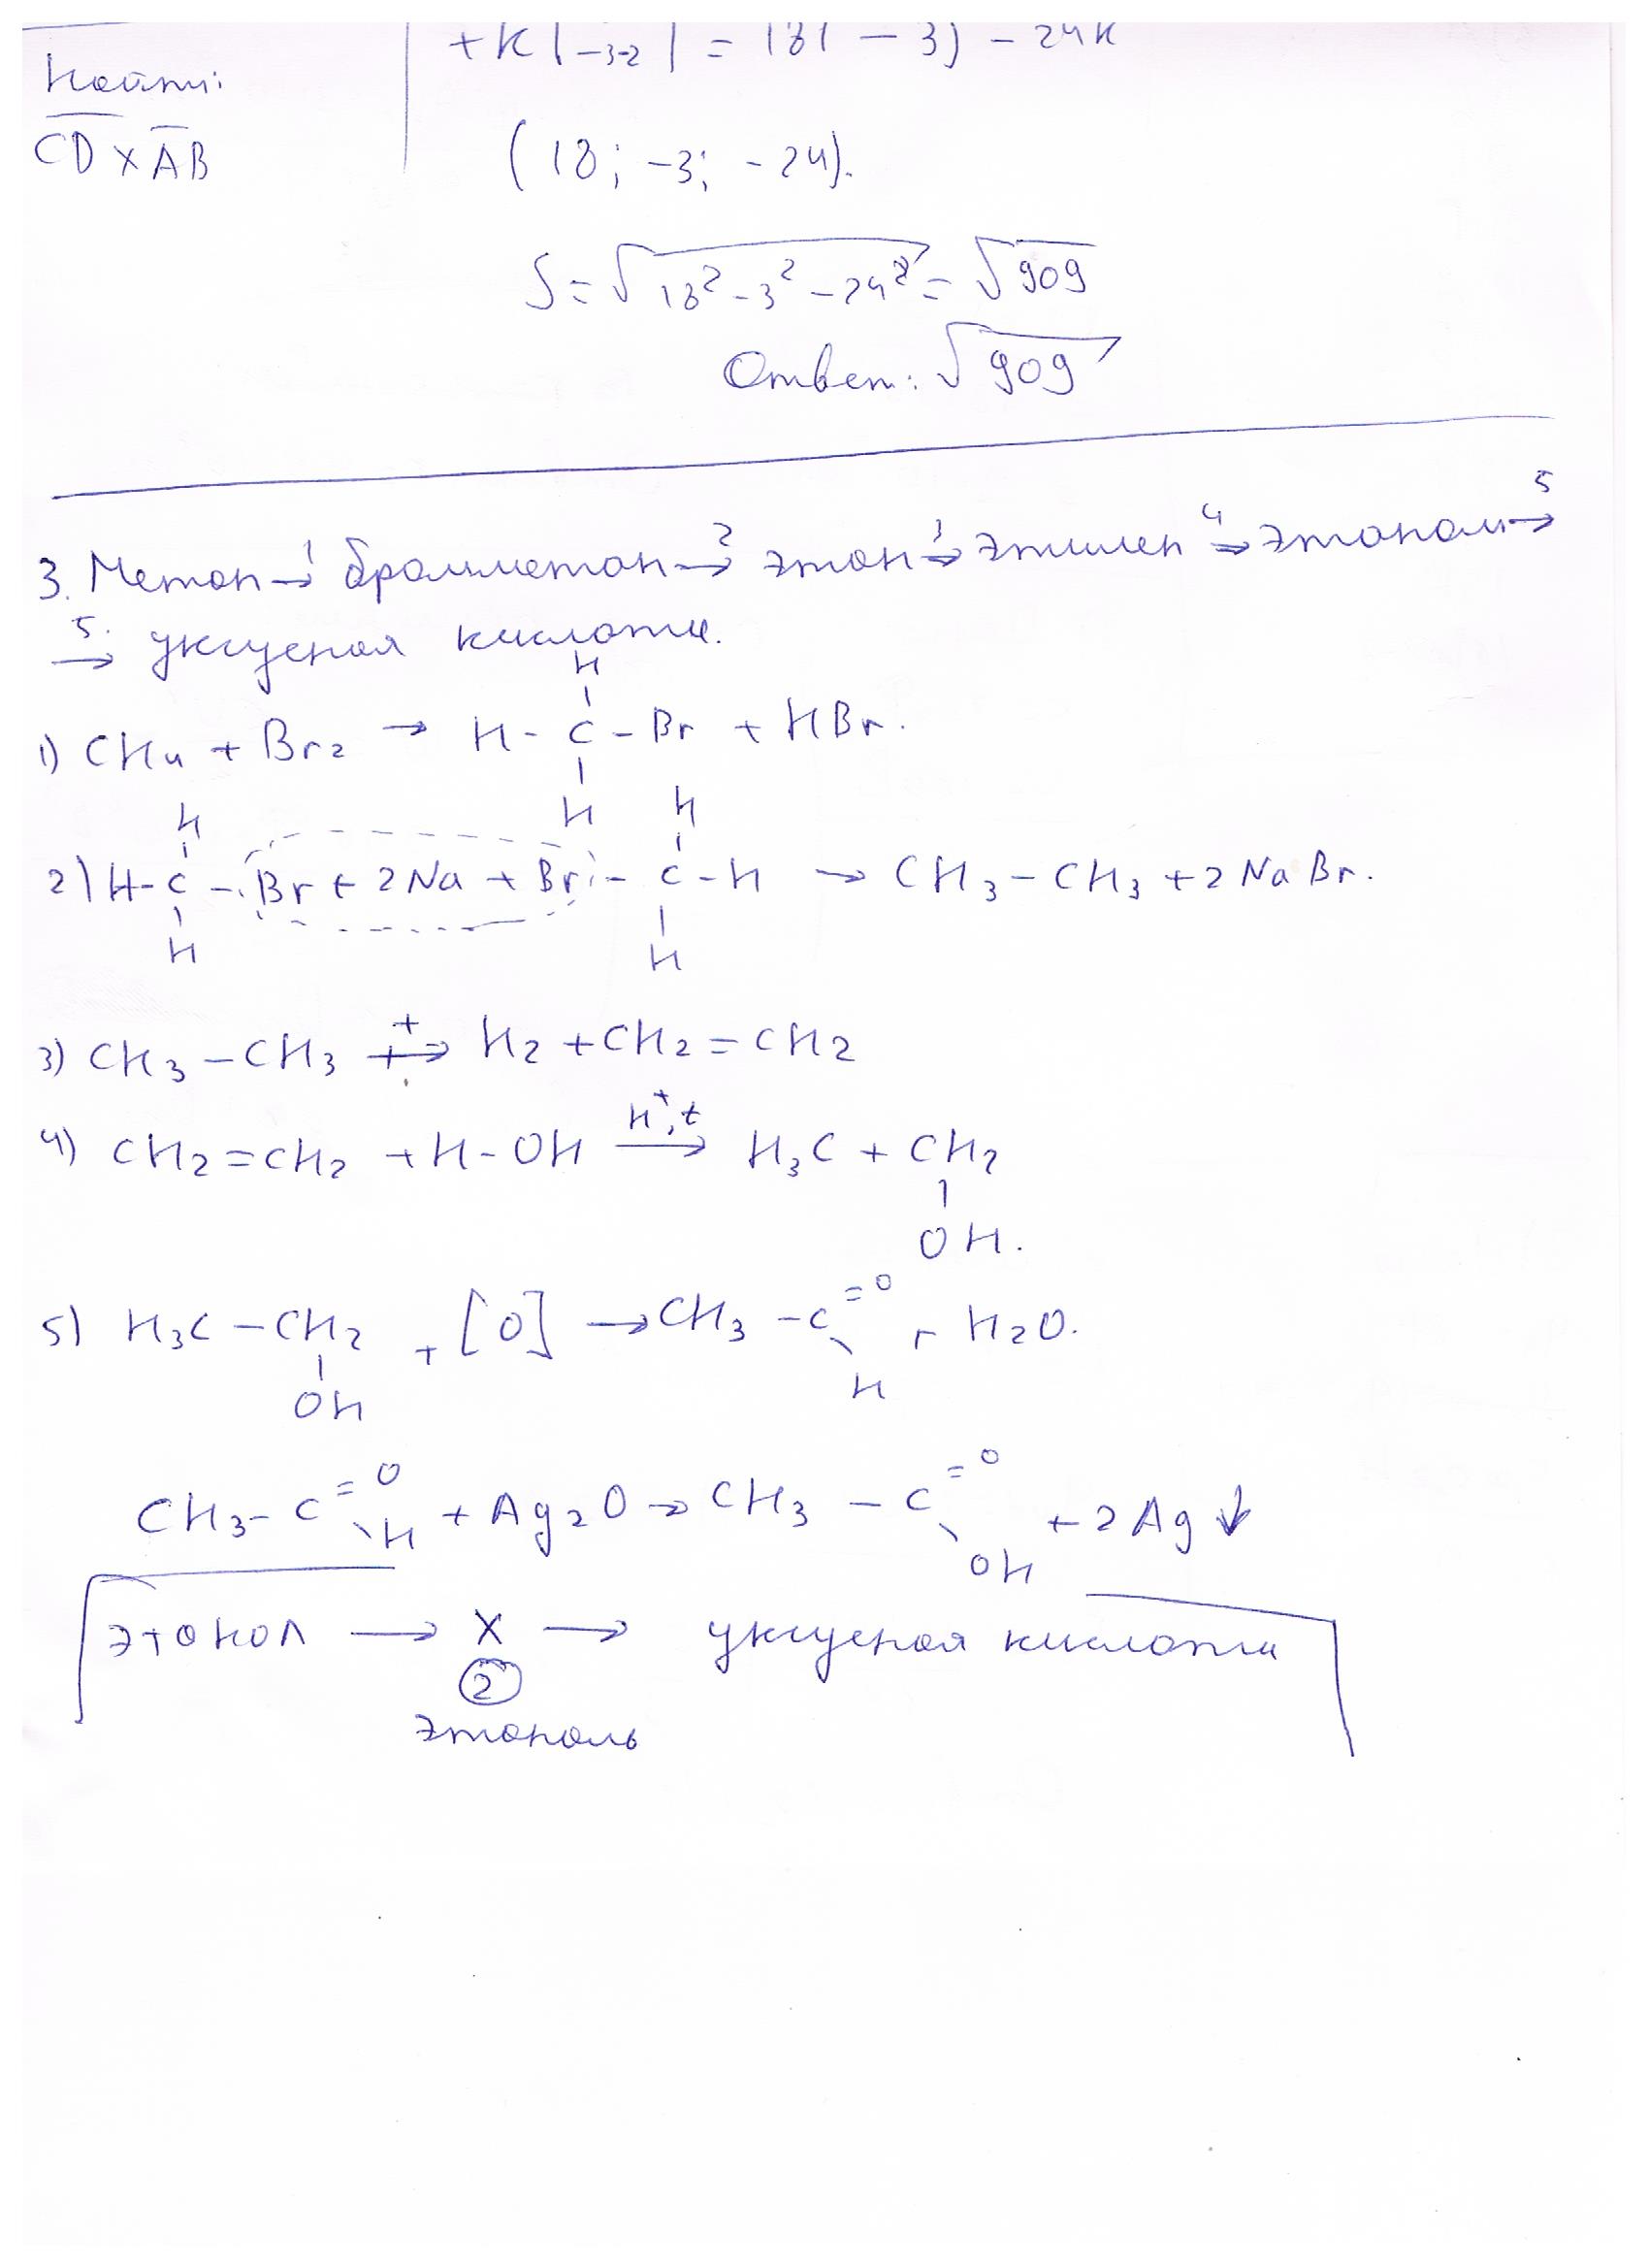 + K |-3-2| = 18i - 3j - 24к
Найти:
CD x AB
(18; -3; -24).
S = √18² - 3² - 24² = √909
Ответ: √909
3. Метан →¹ бромметан →² этан →³ этилен →⁴ этанол →⁵
→⁵ уксусная кислота.
1) CH4 + Br2 → H - C - Br + HBr.
H
H
2) H - C - Br + 2Na + Br - C - H → CH3 - CH3 + 2NaBr.
H H
H H
3) CH3 - CH3 →t H2 + CH2 = CH2
4) CH2 = CH2 + H - OH →H⁺,t H3C + CH2
OH.
5) H3C - CH2 + [O] → CH3 - C =O + H2O.
OH H
CH3 - C =O H + Ag2O → CH3 - C =O OH + 2Ag↓
этанол → X → уксусная кислота
2
этаналь